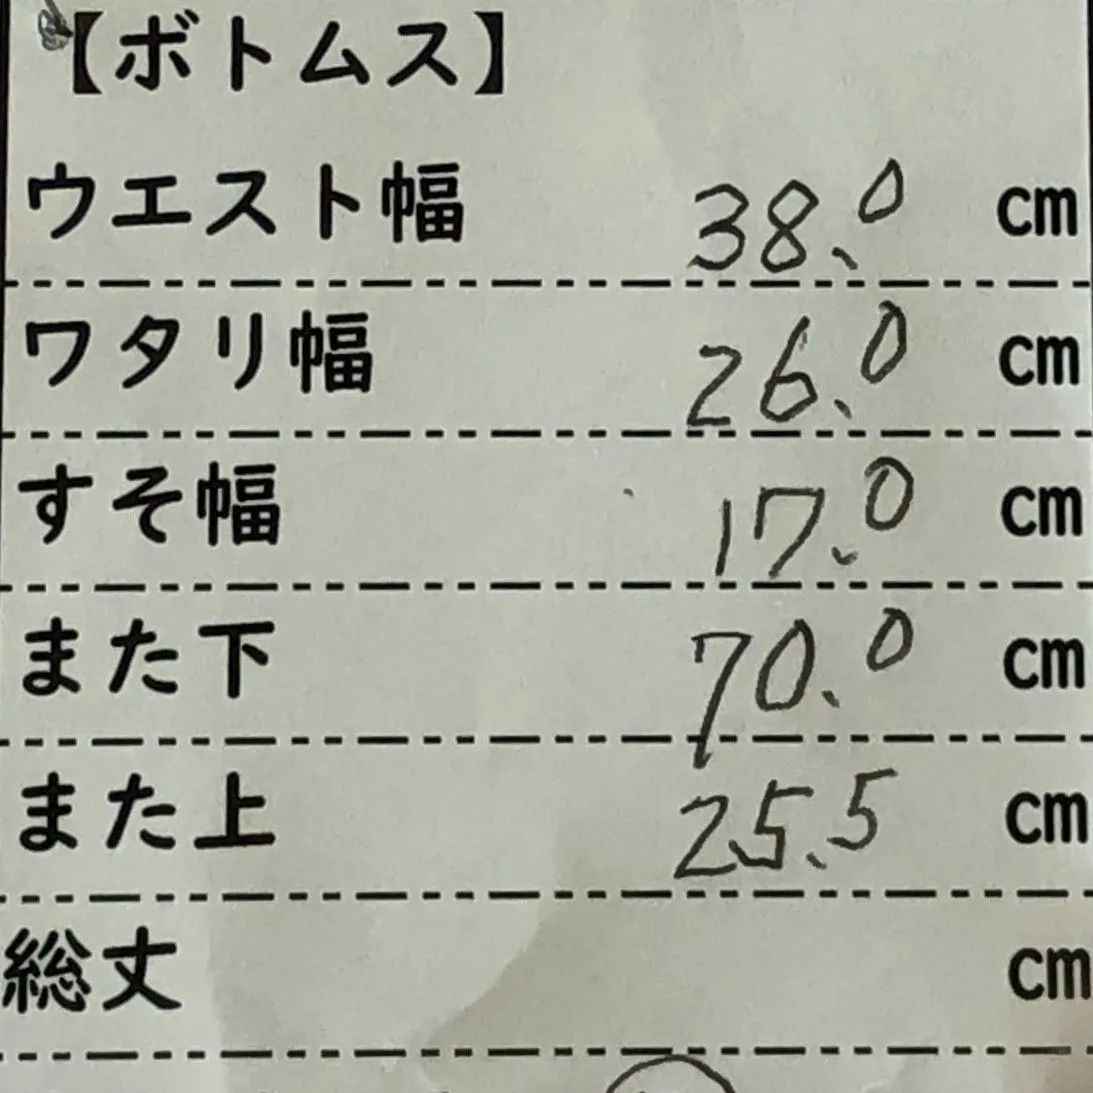 【ボトムス】
ウエスト幅 38.0 cm
ワタリ幅 26.0 cm
すそ幅 17.0 cm
また下 70.0 cm
また上 25.5 cm
総丈 cm